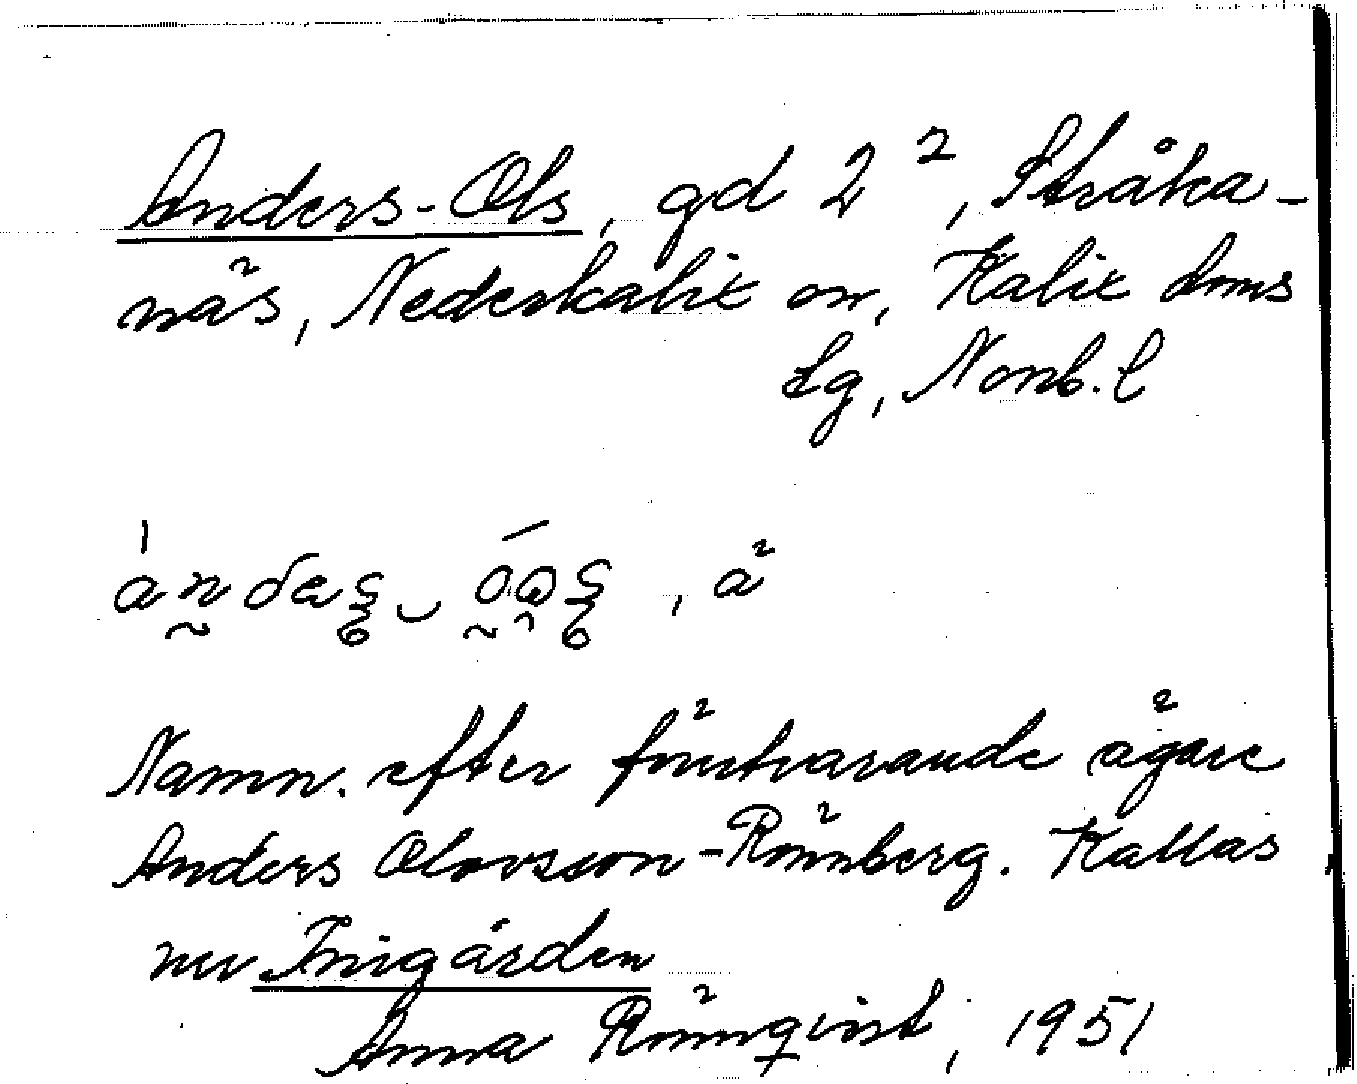 Anders-Ols, gd 2², Stråka-
näs, Nederkalix sn, Kalix doms
lg, Norrb. l
Namn. efter förutvarande ägare
Anders Olovsson-Rönnberg. Kallas
nu Inigården
Anna Rönnqvist, 1951